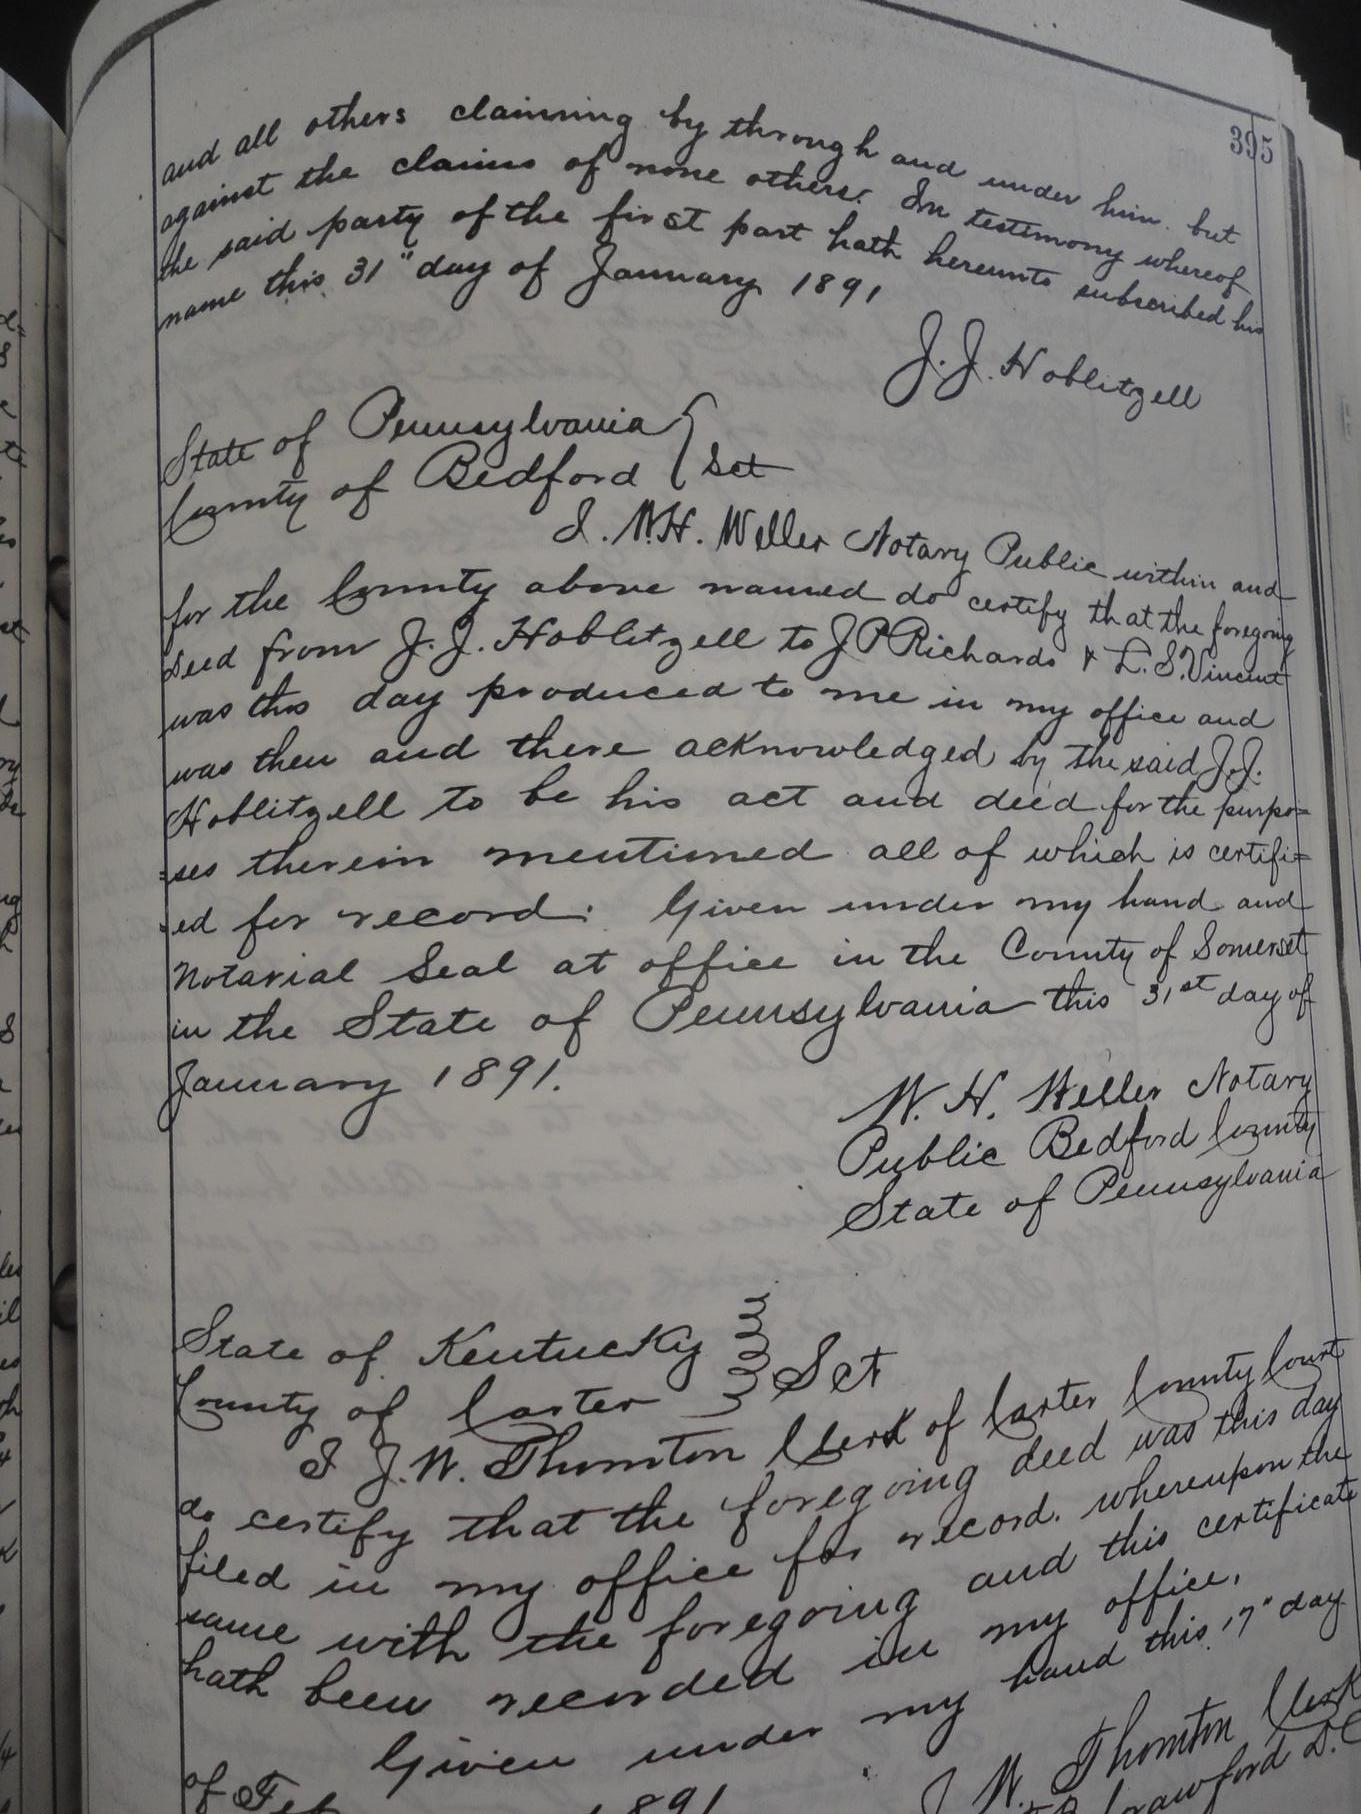 395
and all others claiming by through and under him. but
against the claims of none others. In testimony whereof
the said party of the first part hath hereunto subscribed his
name this 31" day of January 1891
J. J. Hoblitzell
State of Pennsylvania
County of Bedford } Sct
I. W.H. Weller Notary Public within and
for the County above named do certify that the foregoing
deed from J. J. Hoblitzell to J P Richards & L. S. Vincent
was this day produced to me in my office and
was then and there acknowledged by the said J.J.
Hoblitzell to be his act and deed for the purpo=
=ses therein mentioned all of which is certifi=
=ed for record. Given under my hand and
Notarial Seal at office in the County of Somerset
in the State of Pennsylvania this 31st day of
January 1891.
W. H. Weller Notary
Public Bedford County
State of Pennsylvania
State of Kentucky
County of Carter } Sct
I J. W. Thornton Clerk of Carter County Court
do certify that the foregoing deed was this day
filed in my office for record. whereupon the
same with the foregoing and this certificate
hath been recorded in my office.
Given under my hand this 17" day
of 1891
J. W. Thornton Clerk
Crawford D.C